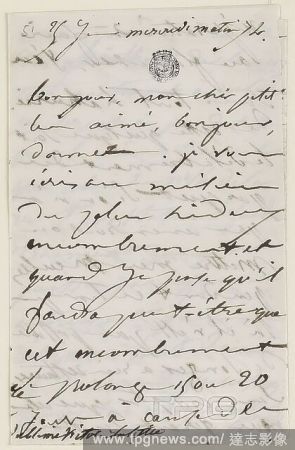 mercredi matin
bonjour, mon cher petit
bien aimé, bonjour,
dormez. je vous
écris au milieu
du plus hideux
encombrement et
quand je pense qu'il
faudra peut-être que
cet encombrement
se prolonge 15 ou 20
jours à cause de
Victor
www.tpgnews.com / 達志影像